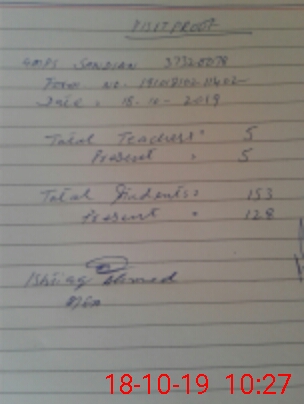 VISIT PROOF
GMPS SANDIAN 37320078
Form No.
Date : 18-10-2019
Total Teachers: 5
Present : 5
Total Students: 153
Present : 128
Ishtiaq Ahmed
18-10-19 10:27